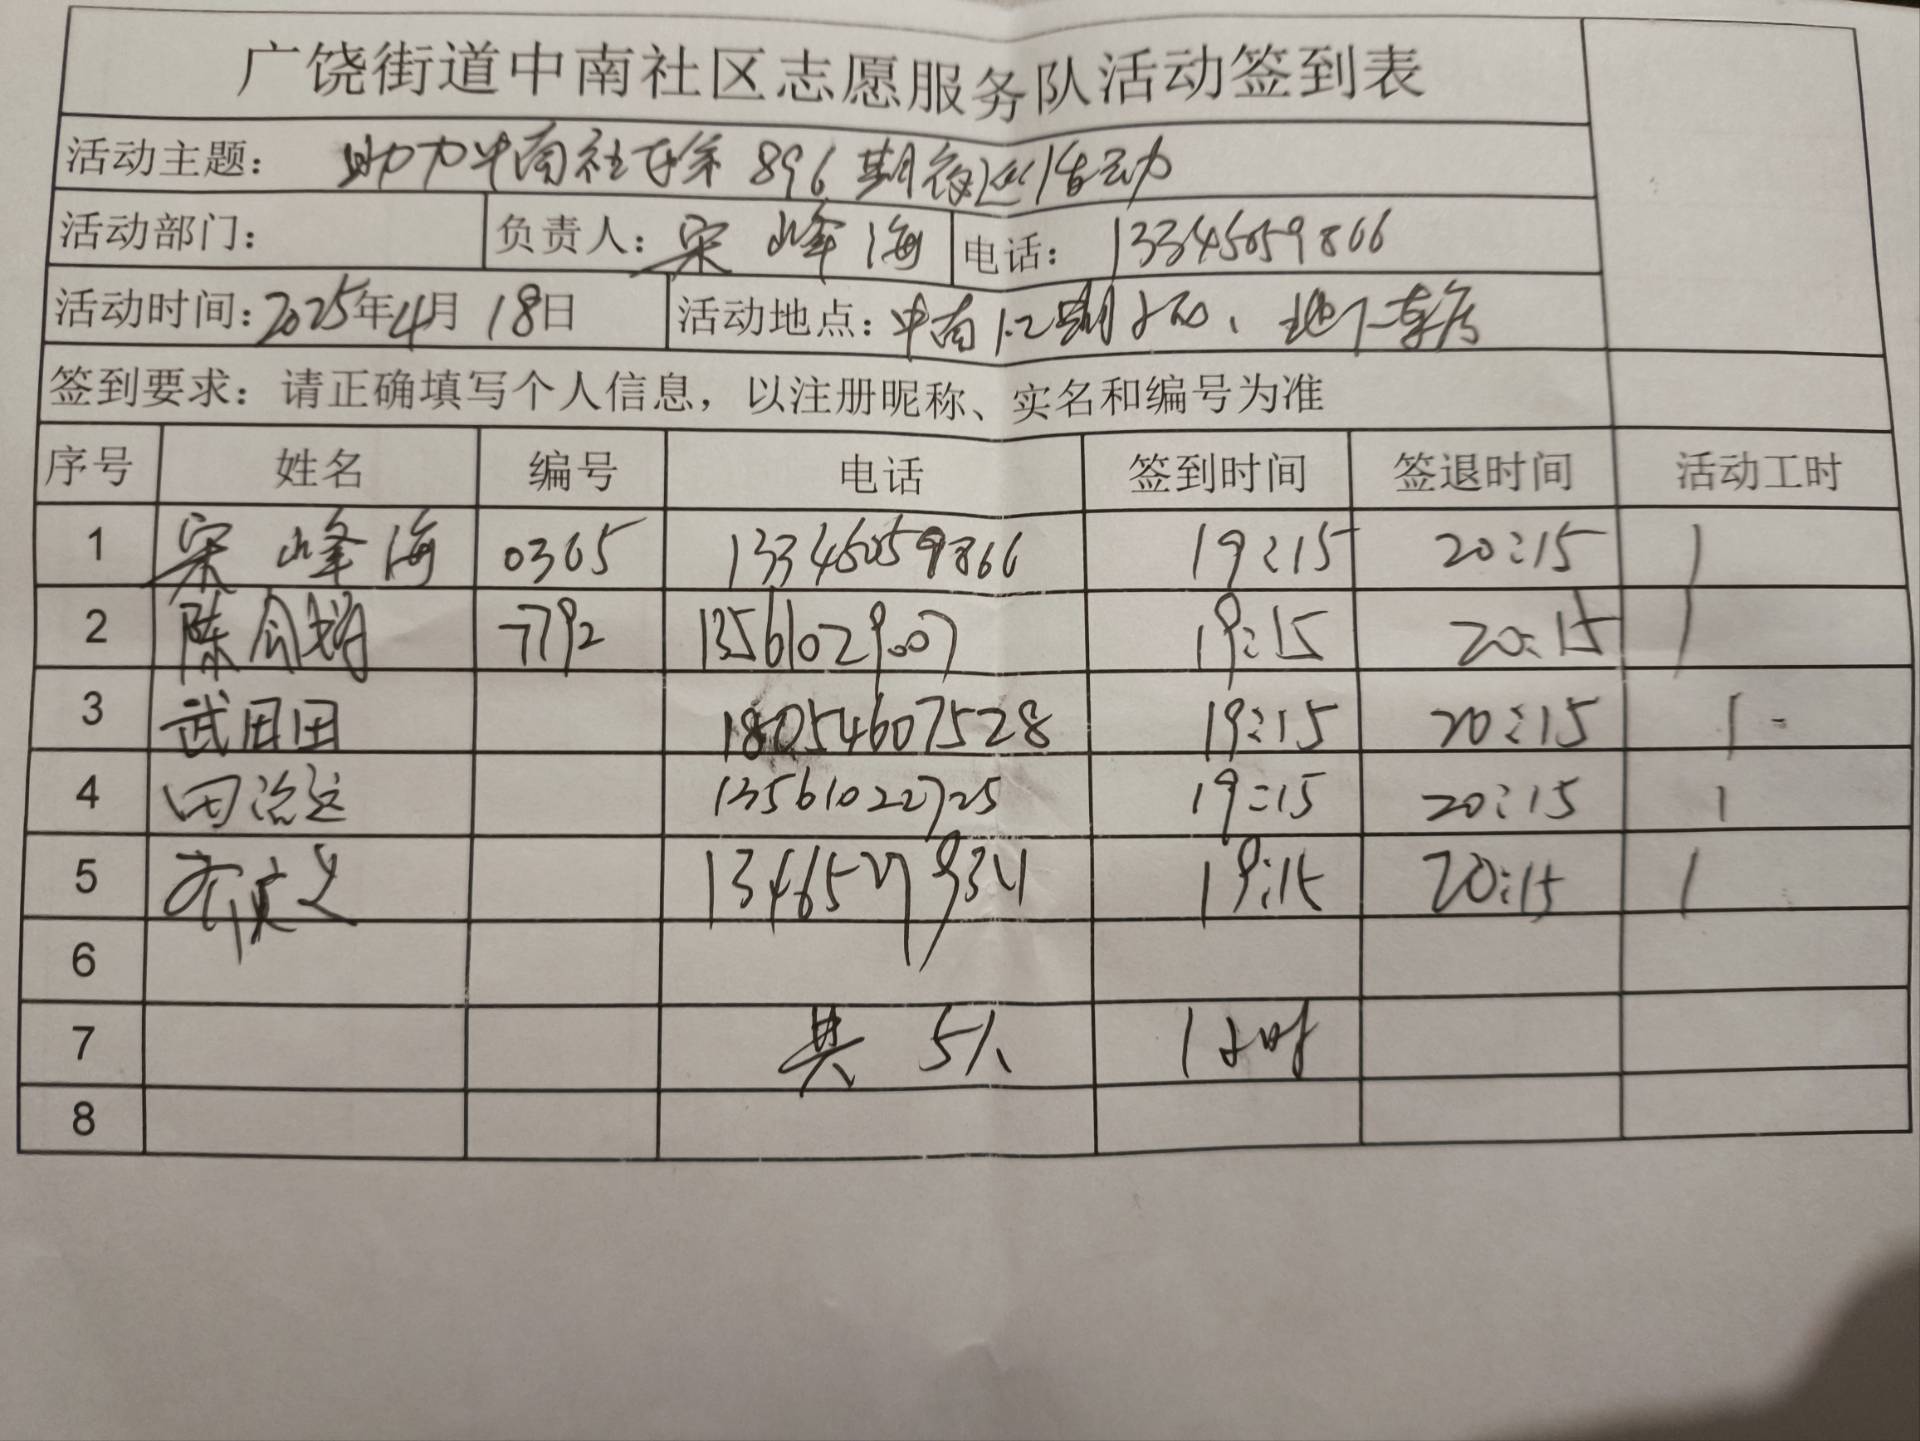 广饶街道中南社区志愿服务队活动签到表
活动主题： 助力中南社区第896期夜巡活动
活动部门： 负责人：宋峰海 电话：13345059866
活动时间：2025年4月18日 活动地点：中南1.2期 、地下车库
签到要求：请正确填写个人信息，以注册昵称、实名和编号为准
序号 姓名 编号 电话 签到时间 签退时间 活动工时
1 宋峰海 0365 13345059866 19:15 20:15 1
2 陈 7792 13561029007 19:15 20:15 1
3 武田田 18054607528 19:15 20:15 1
4 田 13561022725 19:15 20:15 1
5 19:15 20:15 1
6
7 共5人 1小时
8